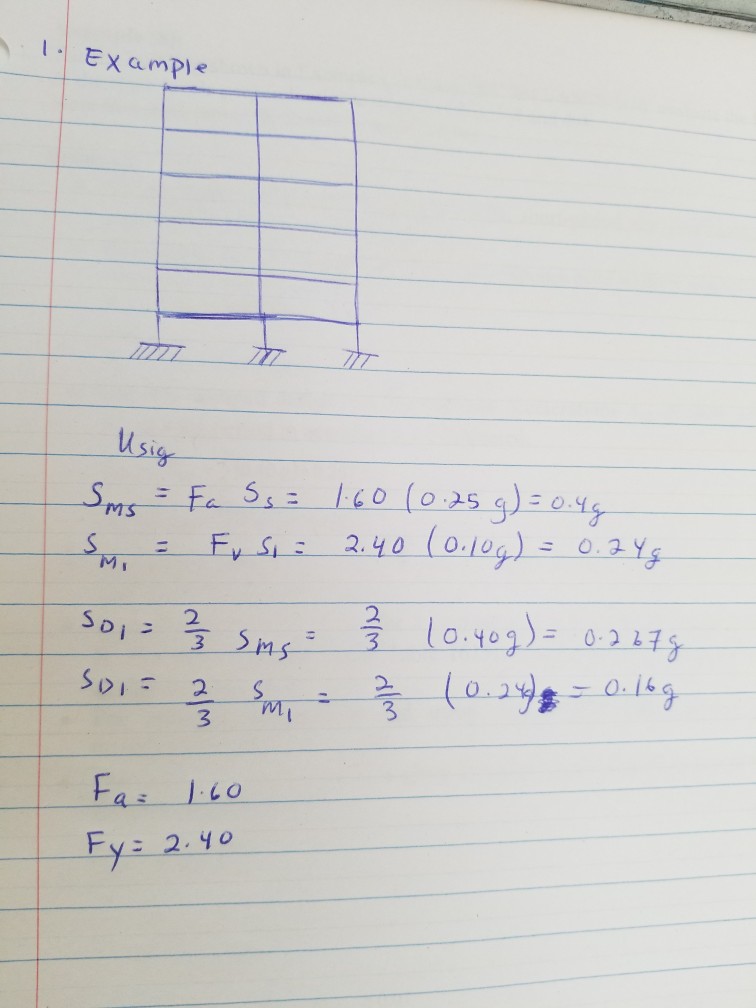 1. Example
Usig
S_MS = Fa Ss = 1.60 (0.25 g) = 0.4g
S_M1 = Fv S1 = 2.40 (0.10g) = 0.24g
SD1 = 2/3 S_MS = 2/3 (0.40g) = 0.267g
SD1 = 2/3 S_M1 = 2/3 (0.24g) = 0.16g
Fa = 1.60
Fy = 2.40